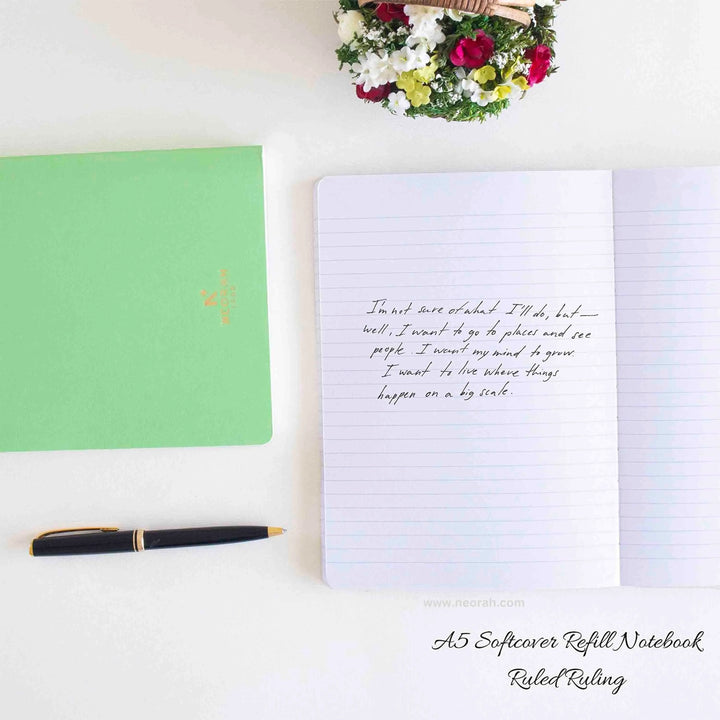 I'm not sure of what I'll do, but —
well, I want to go to places and see
people. I want my mind to grow.
I want to live where things
happen on a big scale.
www.neorah.com
A5 Softcover Refill Notebook
Ruled Ruling